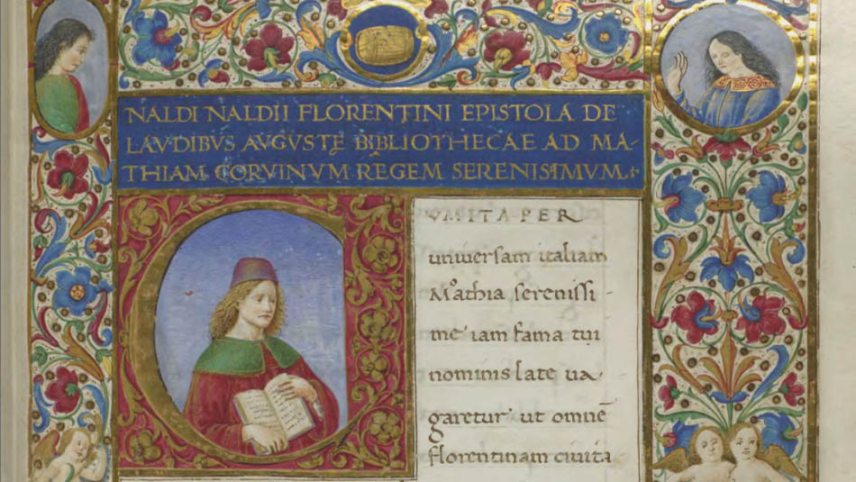 NALDI NALDII FLORENTINI EPISTOLA DE
LAVDIBVS AVGVSTĘ BIBLIOTHECAE AD MA-
THIAM CORVINVM REGEM SERENISIMVM.
C VM ITA PER
universam italiam
Mathia serenissi-
me iam fama tui
nominis late va-
garetur ut omnē
florentinam civita